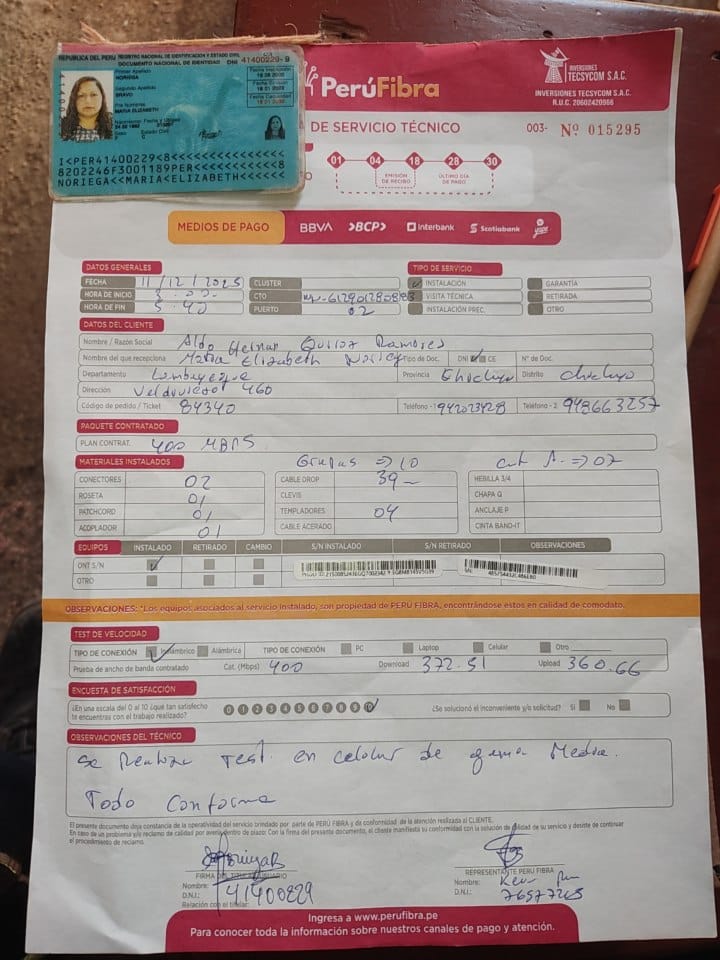 REPUBLICA DEL PERU REGISTRO NACIONAL DE IDENTIFICACION Y ESTADO CIVIL
DOCUMENTO NACIONAL DE IDENTIDAD DNI 41400229-9
Primer Apellido
NORIEGA
Segundo Apellido
BRAVO
Pre Nombres
MARIA ELIZABETH
Fecha Inscripción
Fecha Emisión
Fecha Caducidad
Estado Civil
I<PER41400229<8<<<<<<<<<<<<<<<
8202246F3001189PER<<<<<<<<<<<8
NORIEGA<<MARIA<ELIZABETH<<<<<<
PerúFibra
INVERSIONES
TECSYCOM S.A.C.
INVERSIONES TECSYCOM S.A.C.
R.U.C. 20602420966
DE SERVICIO TÉCNICO
003- Nº 015295
01 04 18 28 30
EMISIÓN DE RECIBO
ÚLTIMO DÍA DE PAGO
MEDIOS DE PAGO BBVA BCP Interbank Scotiabank yape
DATOS GENERALES TIPO DE SERVICIO
FECHA 11/12/2025 CLUSTER INSTALACIÓN GARANTÍA
HORA DE INICIO CTO VISITA TÉCNICA RETIRADA
HORA DE FIN 5:40 PUERTO 02 INSTALACIÓN PREC. OTRO
DATOS DEL CLIENTE
Nombre / Razón Social Aldo Hernan Quiroz Ramires
Nombre del que recepciona Maria Elizabeth Tipo de Doc. DNI CE Nº de Doc.
Departamento Lambayeque Provincia Chiclayo Distrito Chiclayo
Dirección 460
Código de pedido / Ticket 84340 Teléfono - 1 Teléfono - 2 948663257
PAQUETE CONTRATADO
PLAN CONTRAT. 400 MBPS
MATERIALES INSTALADOS Grapas => 10 => 07
CONECTORES 02 CABLE DROP 39 HEBILLA 3/4
ROSETA 01 CLEVIS CHAPA Q
PATCHCORD 01 TEMPLADORES 04 ANCLAJE P
ACOPLADOR 01 CABLE ACERADO CINTA BAND-IT
EQUIPOS INSTALADO RETIRADO CAMBIO S/N INSTALADO S/N RETIRADO OBSERVACIONES
ONT S/N
OTRO
OBSERVACIONES: *Los equipos asociados al servicio instalado, son propiedad de PERÚ FIBRA, encontrándose estos en calidad de comodato.
TEST DE VELOCIDAD
TIPO DE CONEXIÓN Inalámbrico Alámbrica TIPO DE CONEXIÓN PC Laptop Celular Otro
Prueba de ancho de banda contratado Cat. (Mbps) 400 Download 372.51 Upload 360.66
ENCUESTA DE SATISFACCIÓN
¿En una escala del 0 al 10 ¿qué tan satisfecho te encuentras con el trabajo realizado? 0 1 2 3 4 5 6 7 8 9 10 ¿Se solucionó el inconveniente y/o solicitud? Si No
OBSERVACIONES DEL TÉCNICO
Se Realizo Test en celular de gama Media.
Todo Conforme
El presente documento deja constancia de la operatividad del servicio brindado por parte de PERÚ FIBRA y da conformidad de la atención realizada al CLIENTE.
En caso de un problema y/o reclamo de calidad por avería dentro de plazo: Con la firma del presente documento, el cliente manifiesta su conformidad con la solución de calidad de su servicio y desiste de continuar
el procedimiento de reclamo.
FIRMA DEL TITULAR/USUARIO REPRESENTANTE PERÚ FIBRA
Nombre: Nombre:
D.N.I.: 41400229 D.N.I.:
Relación con el titular:
Ingresa a www.perufibra.pe
Para conocer toda la información sobre nuestros canales de pago y atención.